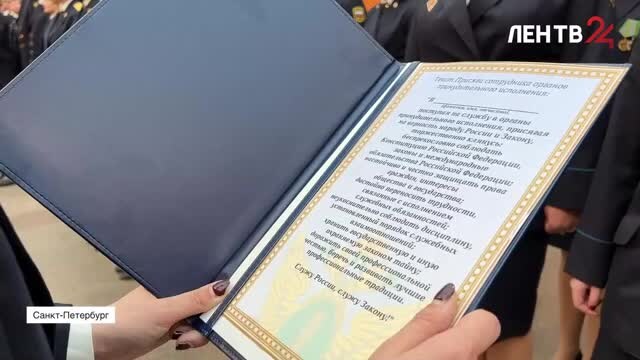 ЛЕНТВ24
Текст Присяги сотрудника органов
принудительного исполнения:
"Я
поступая на службу в органы
принудительного исполнения, присягаю
на верность народу России и Закону,
торжественно клянусь:
беспрекословно соблюдать
Конституцию Российской Федерации,
законы и международные
обязательства Российской Федерации;
настойчиво и честно защищать права
граждан, интересы
общества и государства;
достойно переносить трудности,
связанные с исполнением
служебных обязанностей;
неукоснительно соблюдать дисциплину,
установленный порядок служебных
взаимоотношений;
хранить государственную и иную
охраняемую законом тайну;
дорожить своей профессиональной
честью, беречь и развивать лучшие
профессиональные традиции.
Служу России, служу Закону!"
Санкт-Петербург